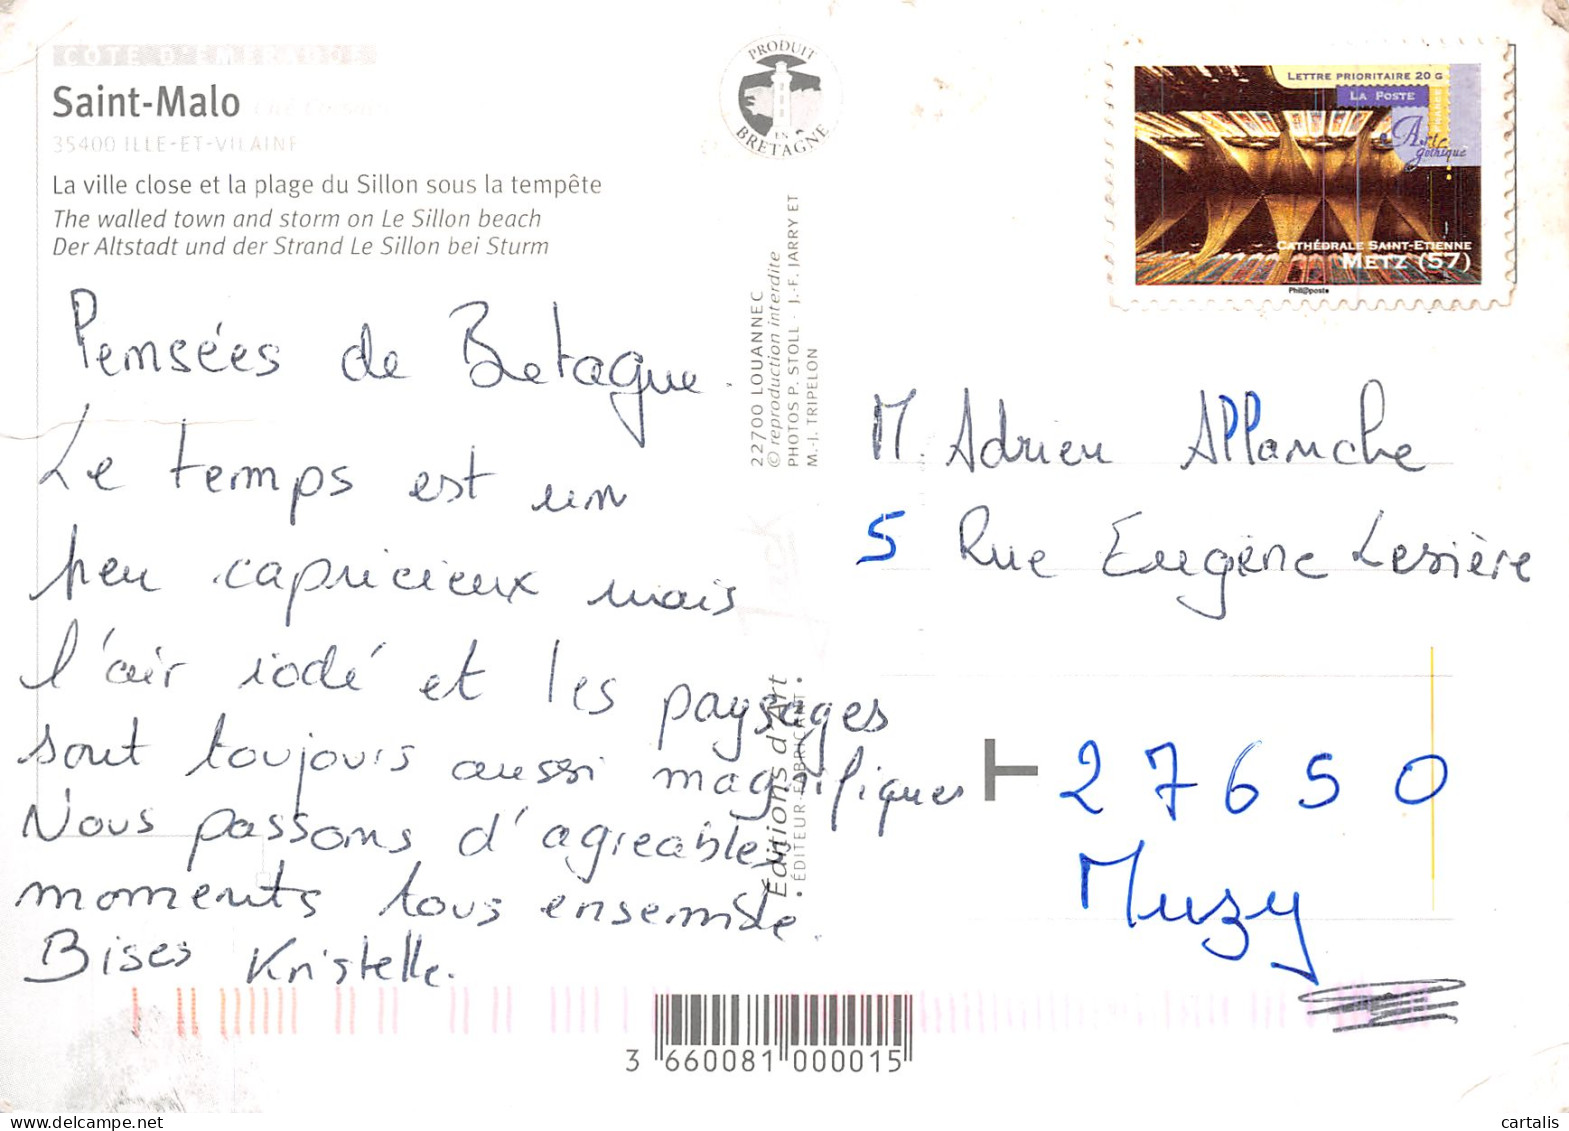 CÔTE D'ÉMERAUDE
Saint-Malo
35400 ILLE-ET-VILAINE
La ville close et la plage du Sillon sous la tempête
The walled town and storm on Le Sillon beach
Der Altstadt und der Strand Le Sillon bei Sturm
Pensées de Bretagne.
Le temps est un
peu capricieux mais
l'air iodé et les paysages
sont toujours aussi magnifiques
Nous passons d'agreables
moments tous ensemble.
Bises Kristelle.
PRODUIT
EN
BRETAGNE
22700 LOUANNEC
© reproduction interdite
PHOTOS P. STOLL - J.-F. JARRY ET
M.-J. TRIPELON
Jack
Éditions d'Art
ÉDITEUR-FABRICANT
LETTRE PRIORITAIRE 20 G
LA POSTE
FRANCE
Art
gothique
CATHÉDRALE SAINT-ETIENNE
METZ (57)
Phil@poste
M. Adrien Allanche
5 Rue Eugène Lesière
27650
Muzy
3 660081 000015
cartalis